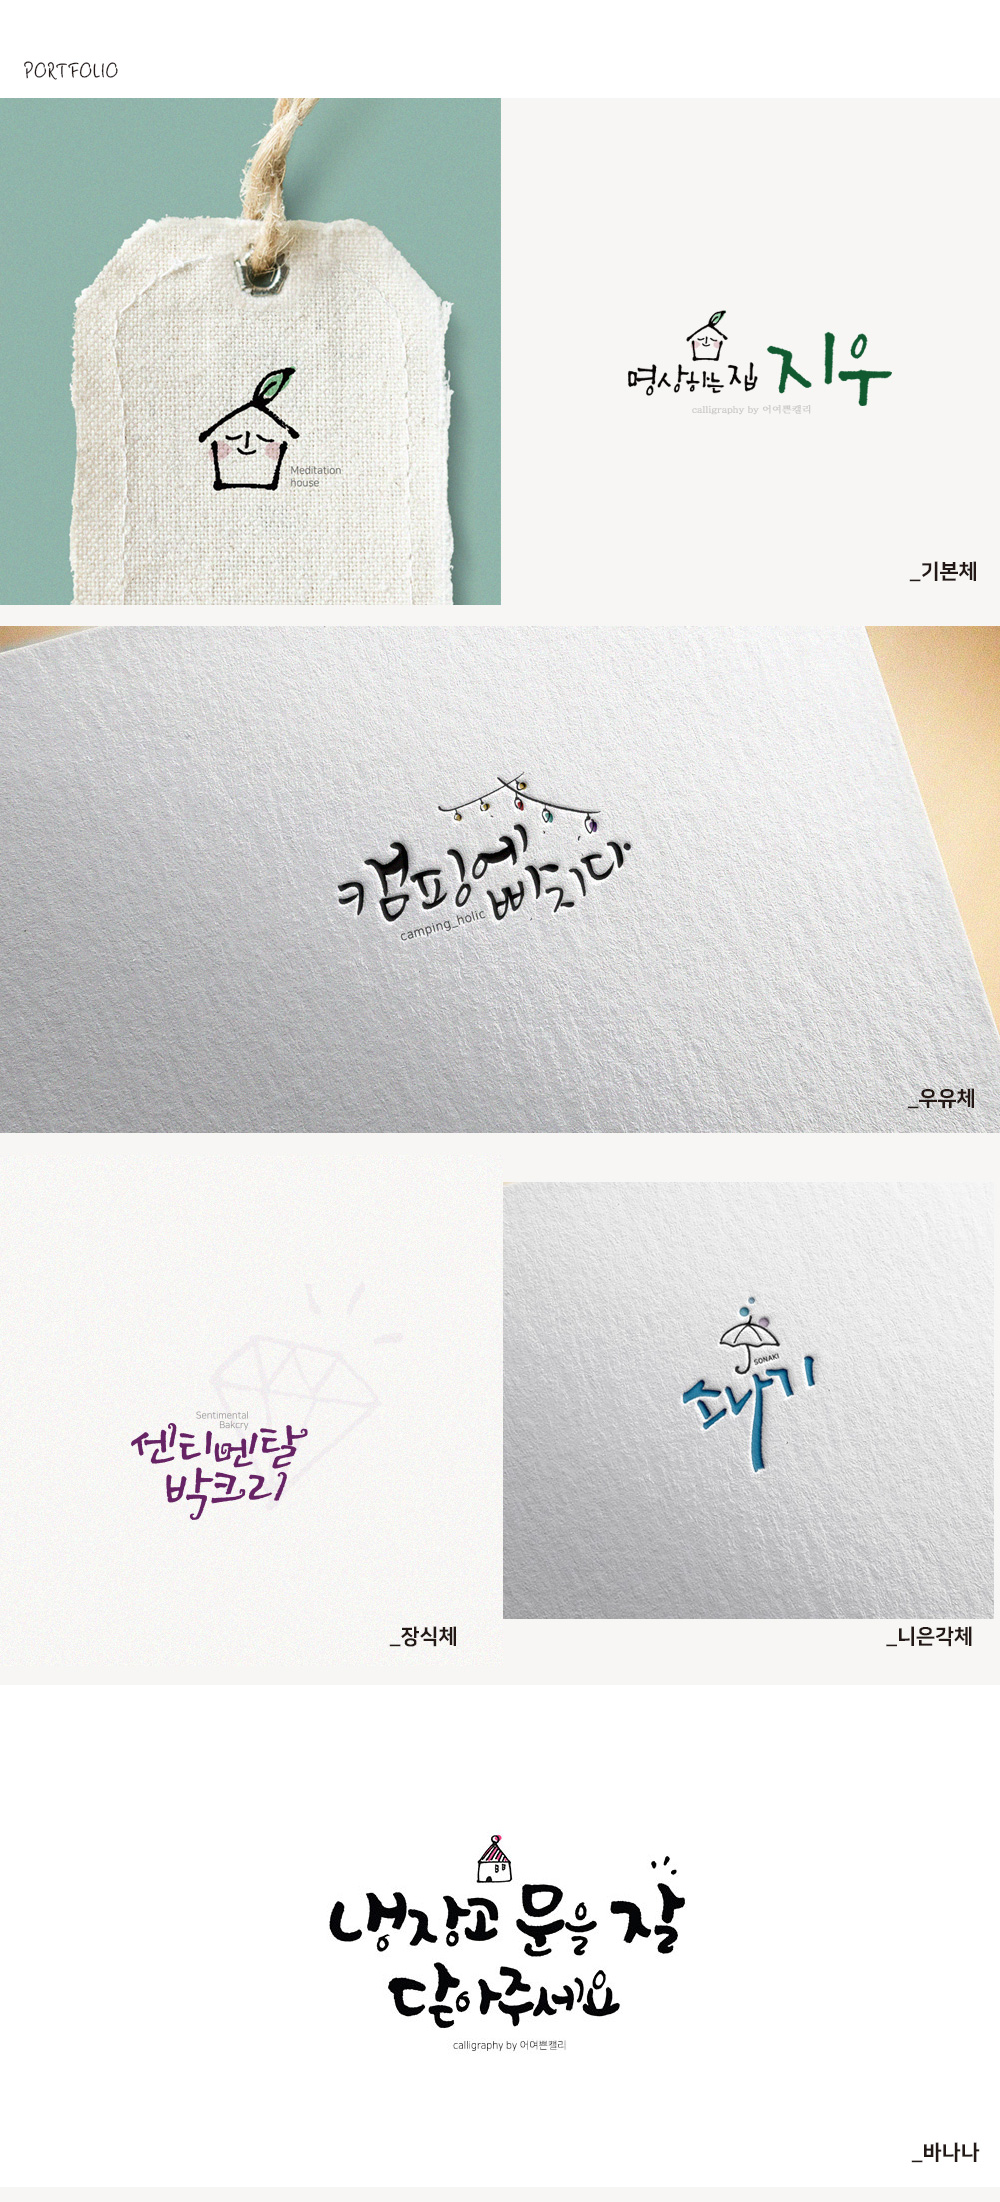 PORTFOLIO
Meditation
house
명상하는집 지우
calligraphy by 어여쁜캘리
_기본체
캠핑에 빠지다
camping_holic
_우유체
Sentimental
Bakcry
센티멘탈
박크리
_장식체
SONAKI
소나기
_니은각체
냉장고 문을 잘
닫아주세요
calligraphy by 어여쁜캘리
_바나나